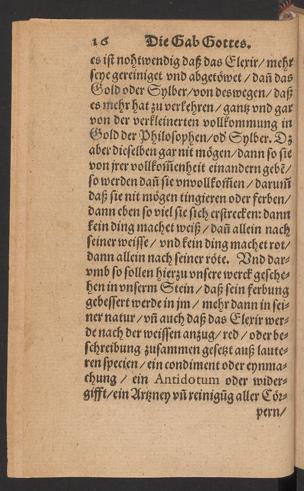 16 Die Gab Gottes.
es ist nohtwendig daß das Elexir / mehr
seye gereiniget vnd abgetöwet / dañ das
Gold oder Sylber / von deswegen / daß
es mehr hat zu verkehren / gantz vnd gar
von der verkleinerten vollkommung in
Gold der Philosophen / od Sylber. Dz
aber dieselben gar nit mögen / dann so sie
von jrer vollkom̃enheit einandern gebẽ /
so werden dañ sie vnvollkom̃en / darum̃
daß sie nit mögen tingieren oder ferben /
dann eben so viel sie sich erstrecken: dann
kein ding machet weiß / dañ allein nach
seiner weisse / vnd kein ding machet rot /
dann allein nach seiner röte. Vnd dar-
vmb so sollen hierzu vnsere werck gesche-
hen in vnserm Stein / daß sein ferbung
gebessert werde in jm / mehr dann in sei-
ner natur / vñ auch daß das Elexir wer-
de nach der weissen anzug / red / oder be-
schreibung zusammen gesetzt auß laute-
ren specien / ein condiment oder eynma-
chung / ein Antidotum oder wider-
gifft / ein Artzney vñ reinigũg aller Cör-
pern /